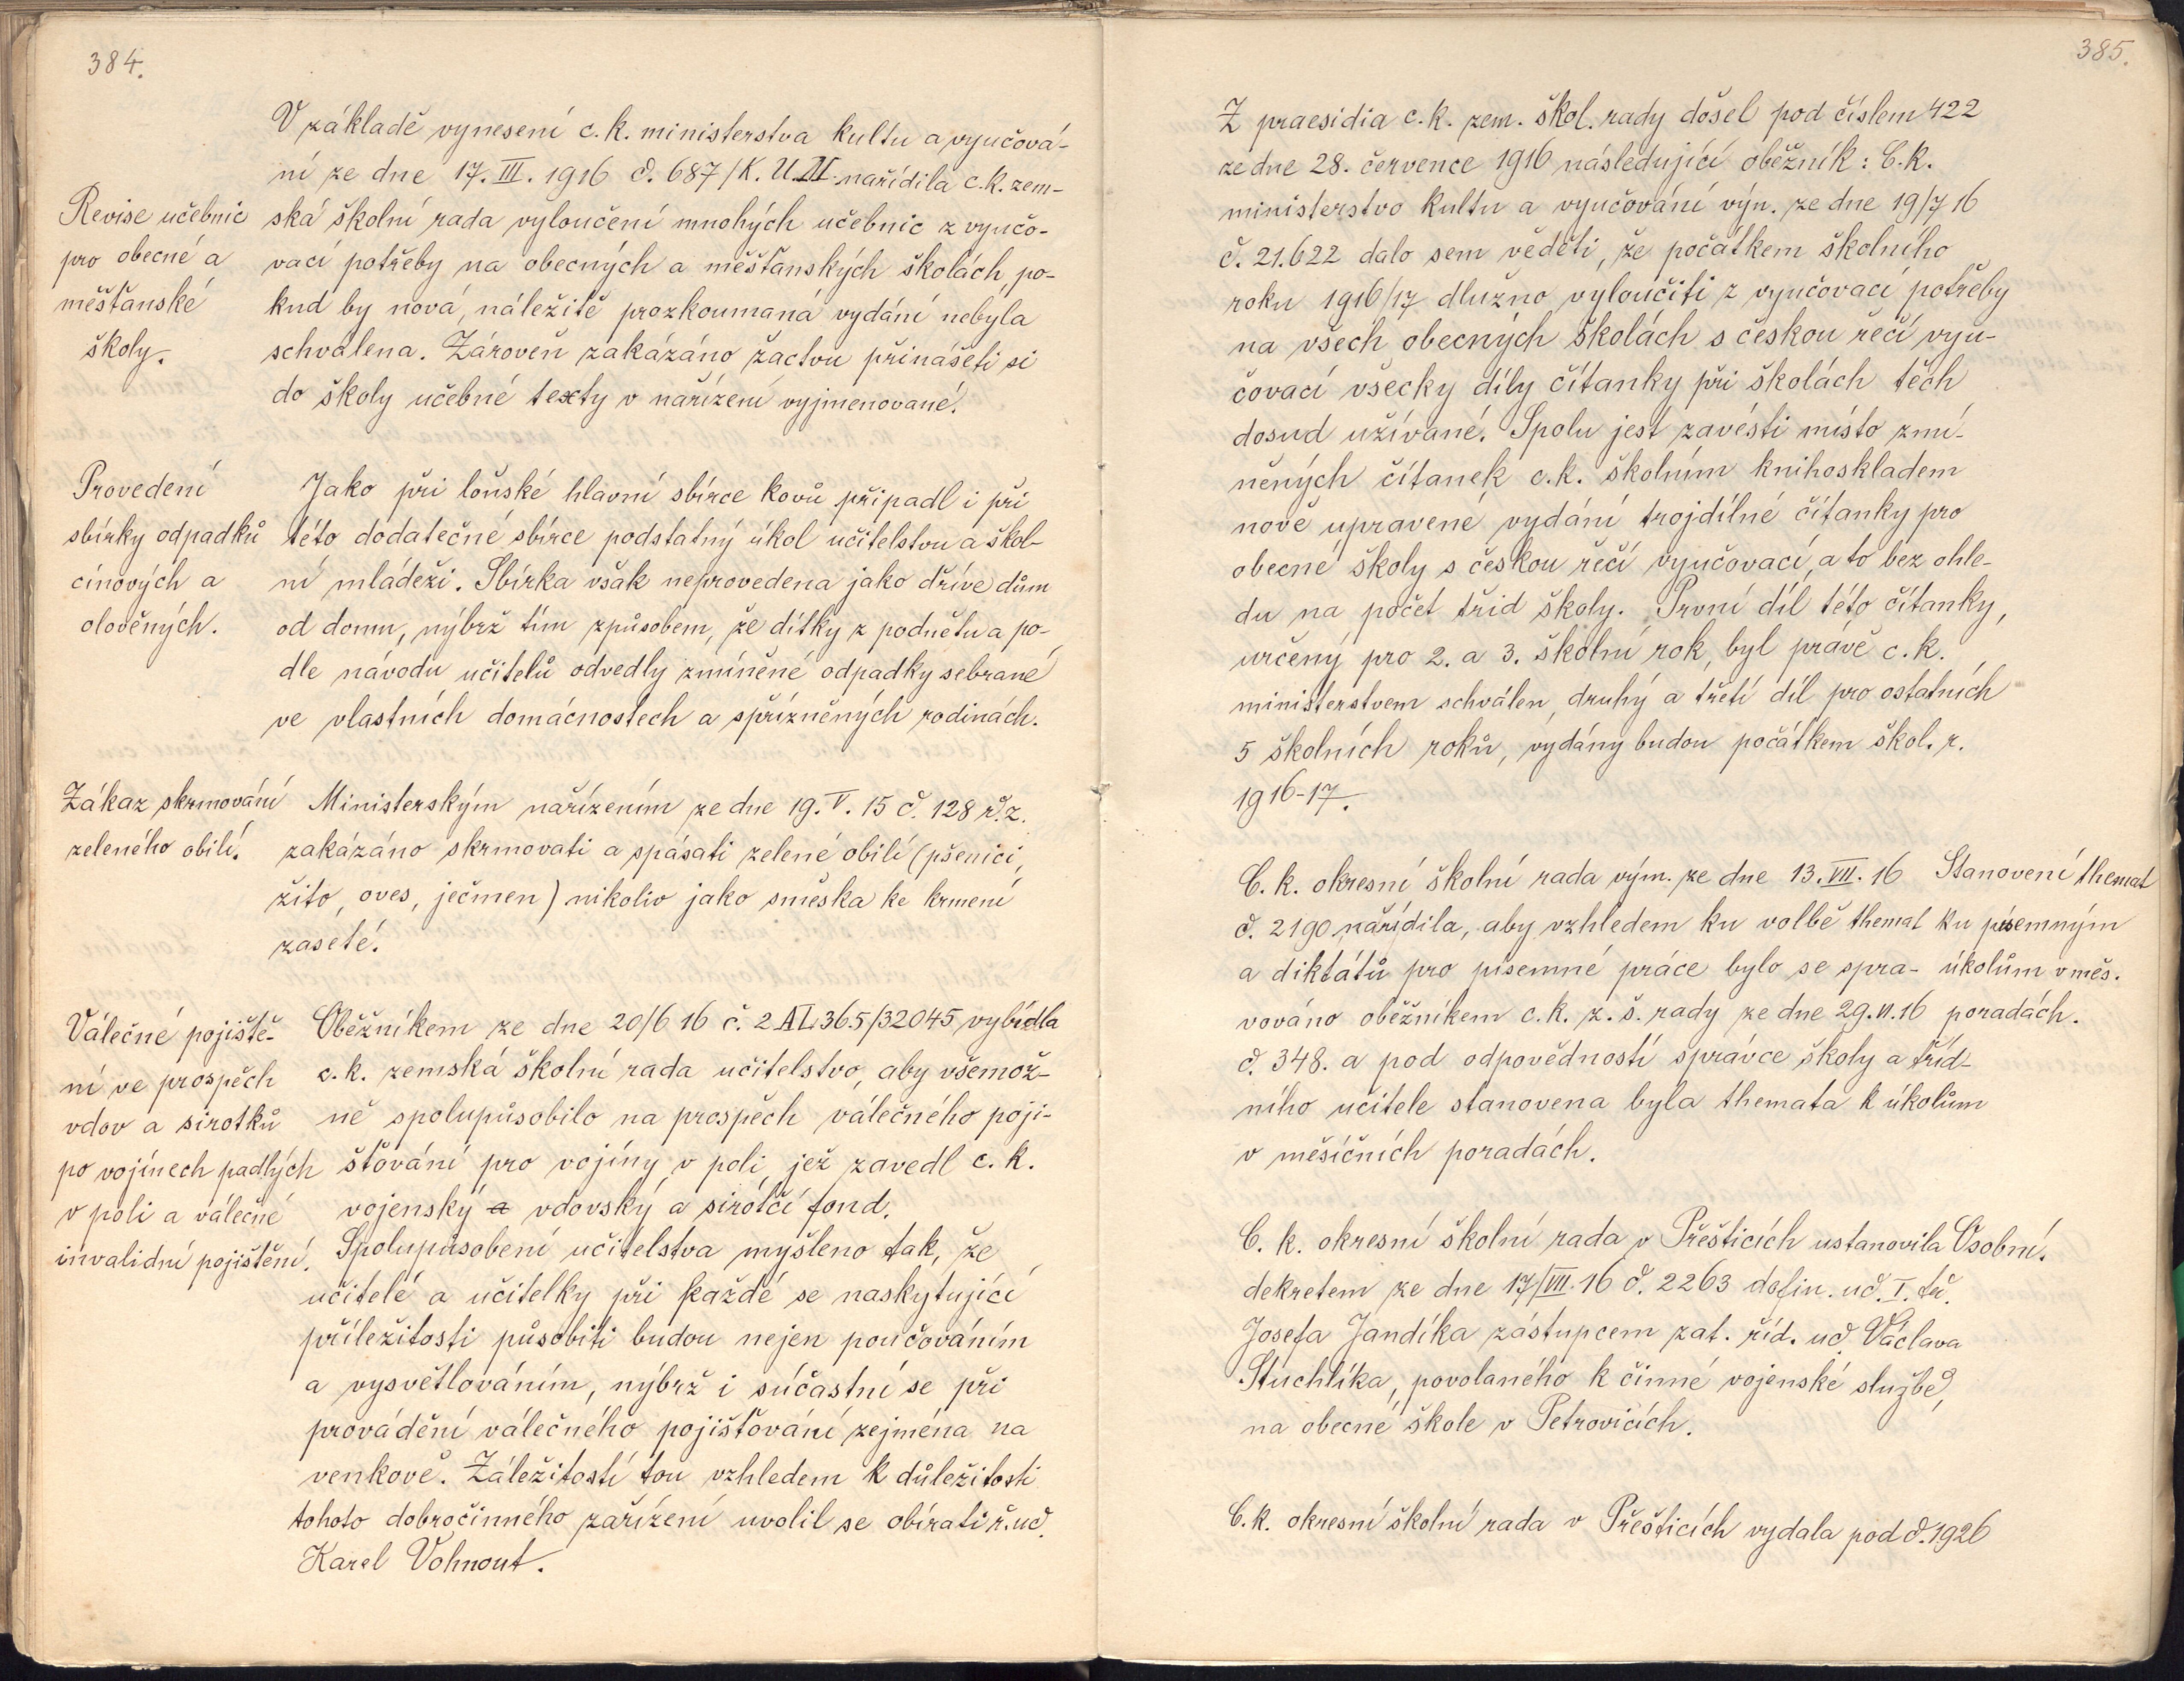 384.
V základě vynesení c. k. ministerstva kultu a vyučová-
ní ze dne 17. III. 1916 č. 687/K. U. M. nařídila c. k. zem-
ská školní rada vyloučení mnohých učebnic z vyučo-
vací potřeby na obecných a měšťanských školách, po-
kud by nová, náležitě prozkoumaná vydání nebyla
schválena. Zároveň zakázáno žactvu přinášeti si
do školy učebné texty v nařízení vyjmenované.
Revise učebnic
pro obecné a
měšťanské
školy.
Provedení
sbírky odpadků
cínových a
olověných.
Jako při loňské hlavní sbírce kovů připadl i při
této dodatečné sbírce podstatný úkol učitelstvu a škol-
ní mládeži. Sbírka však neprovedena jako dříve dům
od domu, nýbrž tím způsobem, že dítky z podnětu a po-
dle návodu učitelů odvedly zmíněné odpadky sebrané
ve vlastních domácnostech a spřízněných rodinách.
Zákaz skrmování
zeleného obilí.
Ministerským nařízením ze dne 19. V. 15 č. 128 ř. z.
zakázáno skrmovati a spásati zelené obilí (pšenici,
žito, oves, ječmen) nikoliv jako směska ke krmení
zaseté.
Válečné pojiště-
ní ve prospěch
vdov a sirotků
po vojínech padlých
v poli a válečné
invalidní pojištění.
Oběžníkem ze dne 20/6 16 č. 2 AI, 365/32045 vybídla
c. k. zemská školní rada učitelstvo, aby všemož-
ně spolupůsobilo na prospěch válečného poji-
šťování pro vojíny v poli, jež zavedl c. k.
vojenský a vdovský a sirotčí fond.
Spolupůsobení učitelstva myšleno tak, že
učitelé a učitelky při každé se naskytující
příležitosti působiti budou nejen poučováním
a vysvětlováním, nýbrž i súčastní se při
provádění válečného pojišťování zejména na
venkově. Záležitostí tou vzhledem k důležitosti
tohoto dobročinného zařízení uvolil se obírati ř. uč.
Karel Vohnout.
385.
Z praesidia c. k. zem. škol. rady došel pod číslem 422
ze dne 28. července 1916 následující oběžník: C. k.
ministerstvo kultu a vyučování výn. ze dne 19/7 16
č. 21.622 dalo sem věděti, že počátkem školního
roku 1916/17 dlužno vyloučiti z vyučovací potřeby
na všech obecných školách s českou řečí vyu-
čovací všecky díly čítanky při školách těch
dosud užívané. Spolu jest zavésti místo zmí-
něných čítanek c. k. školním knihoskladem
nově upravené vydání trojdílné čítanky pro
obecné školy s českou řečí vyučovací, a to bez ohle-
du na počet tříd školy. První díl této čítanky,
určený pro 2. a 3. školní rok, byl právě c. k.
ministerstvem schválen, druhý a třetí díl pro ostatních
5 školních roků, vydány budou počátkem škol. r.
1916-17.
C. k. okresní školní rada vým. ze dne 13. VII. 16
č. 2190 nařídila, aby vzhledem ku volbě themat
a diktátů pro písemné práce bylo se spra-
vováno oběžníkem c. k. z. š. rady ze dne 29. VI. 16
č. 348. a pod odpovědností správce školy a tříd-
ního učitele stanovena byla themata k úkolům
v měsíčních poradách.
Stanovení themat
ku písemným
úkolům v měs.
poradách.
C. k. okresní školní rada v Přešticích ustanovila
dekretem ze dne 17/VII. 16 č. 2263 defin. uč. I. tř.
Josefa Jandíka zástupcem zat. říd. uč. Václava
Stuchlíka, povolaného k činné vojenské službě,
na obecné škole v Petrovicích.
Osobní.
C. k. okresní školní rada v Přešticích vydala pod č. 1926